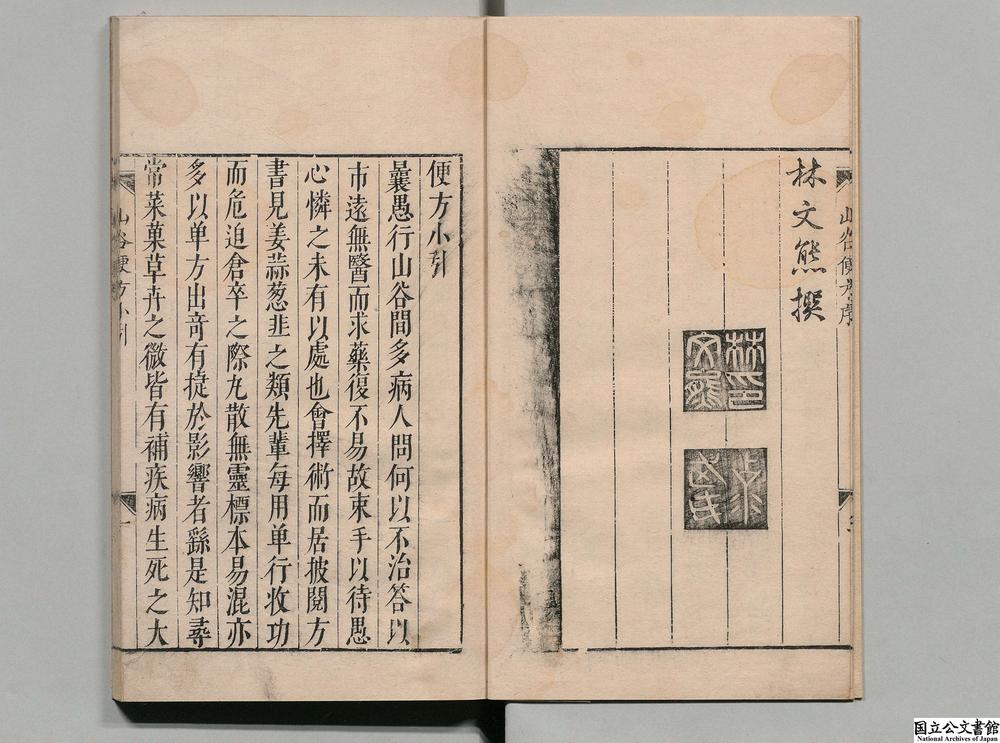 林文熊撰
便方小引
曩愚行山谷間多病人問何以不治答以
市遠無醫而求藥復不易故束手以待愚
心憐之未有以處也會擇術而居披閱方
書見姜蒜葱韮之類先輩每用单行收功
而危迫倉卒之際丸散無靈標本易混亦
多以单方出竒有㨗於影響者繇是知尋
常菜菓草卉之微皆有補疾病生死之大
山谷便方小引
一
国立公文書館
National Archives of Japan